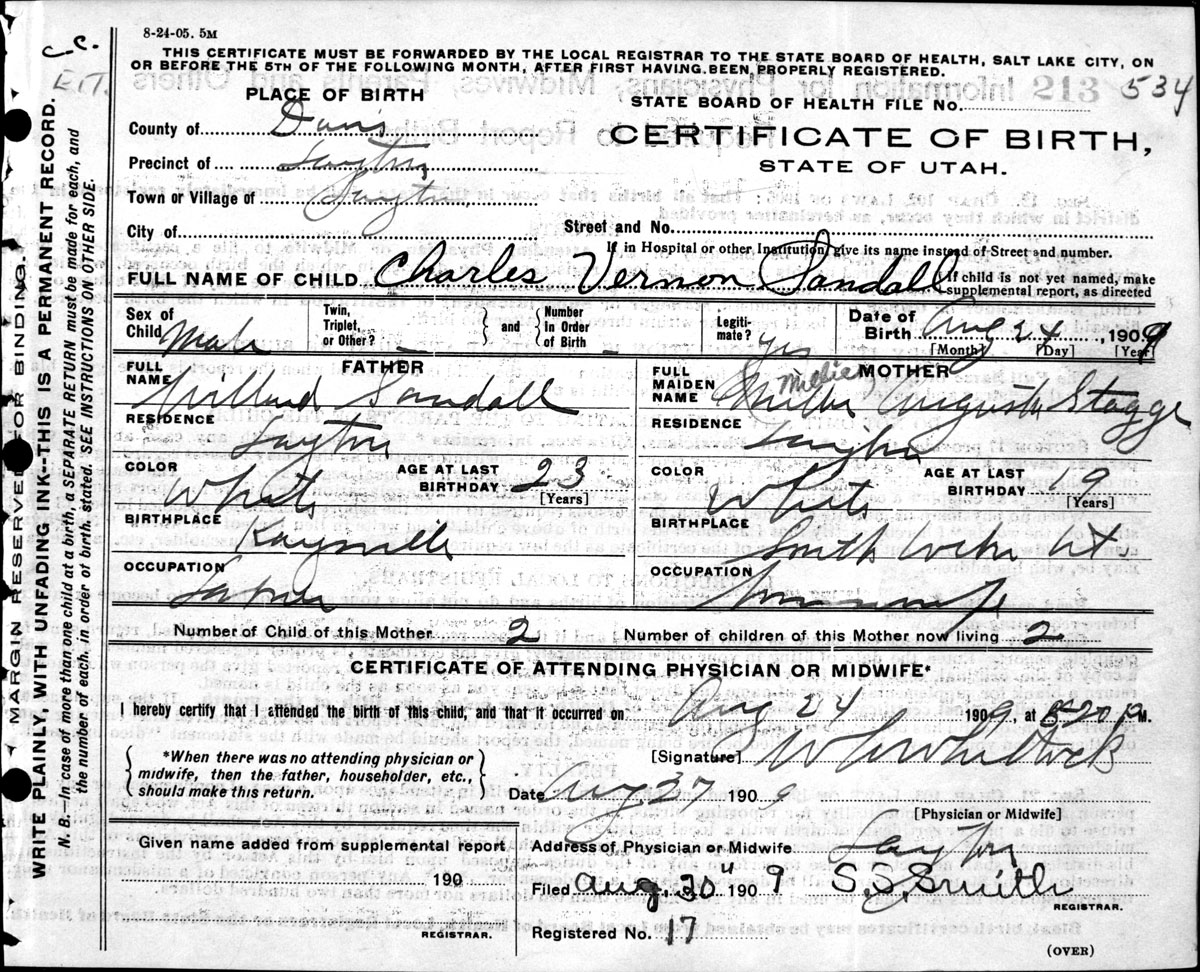 8-24-05. 5M
C.C.
THIS CERTIFICATE MUST BE FORWARDED BY THE LOCAL REGISTRAR TO THE STATE BOARD OF HEALTH, SALT LAKE CITY, ON
OR BEFORE THE 5TH OF THE FOLLOWING MONTH, AFTER FIRST HAVING BEEN PROPERLY REGISTERED.
213 534
PLACE OF BIRTH
STATE BOARD OF HEALTH FILE NO.
County of Davis
CERTIFICATE OF BIRTH,
Precinct of Layton
STATE OF UTAH.
Town or Village of Layton
City of
Street and No.
If in Hospital or other Institution, give its name instead of Street and number.
FULL NAME OF CHILD Charles Vernon Sandall
If child is not yet named, make
supplemental report, as directed
Sex of Child Male
Twin, Triplet, or Other? –
and
Number in Order of Birth –
Legiti-mate? yes
Date of Birth Aug 24, 1909
[Month] [Day] [Year]
FATHER
FULL NAME Willard Sandall
RESIDENCE Layton
COLOR White
AGE AT LAST BIRTHDAY 23
[Years]
BIRTHPLACE Kaysville
OCCUPATION
MOTHER
FULL MAIDEN NAME Millie Augusta Stagge
RESIDENCE Layton
COLOR White
AGE AT LAST BIRTHDAY 19
[Years]
BIRTHPLACE Smith Ut.
OCCUPATION Housewife
Number of Child of this Mother 2
Number of children of this Mother now living 2
CERTIFICATE OF ATTENDING PHYSICIAN OR MIDWIFE*
I hereby certify that I attended the birth of this child, and that it occurred on Aug 24 1909, at 8-20 P M.
*When there was no attending physician or
midwife, then the father, householder, etc.,
should make this return.
[Signature]
Date Aug 27 1909
[Physician or Midwife]
Given name added from supplemental report
190
REGISTRAR.
Address of Physician or Midwife Layton
Filed Aug. 30 1909 S. S. Smith
REGISTRAR.
Registered No. 17
(OVER)
MARGIN RESERVED FOR BINDING.
WRITE PLAINLY, WITH UNFADING INK--THIS IS A PERMANENT RECORD.
N. B.—In case of more than one child at a birth, a SEPARATE RETURN must be made for each, and
the number of each, in order of birth, stated. SEE INSTRUCTIONS ON OTHER SIDE.